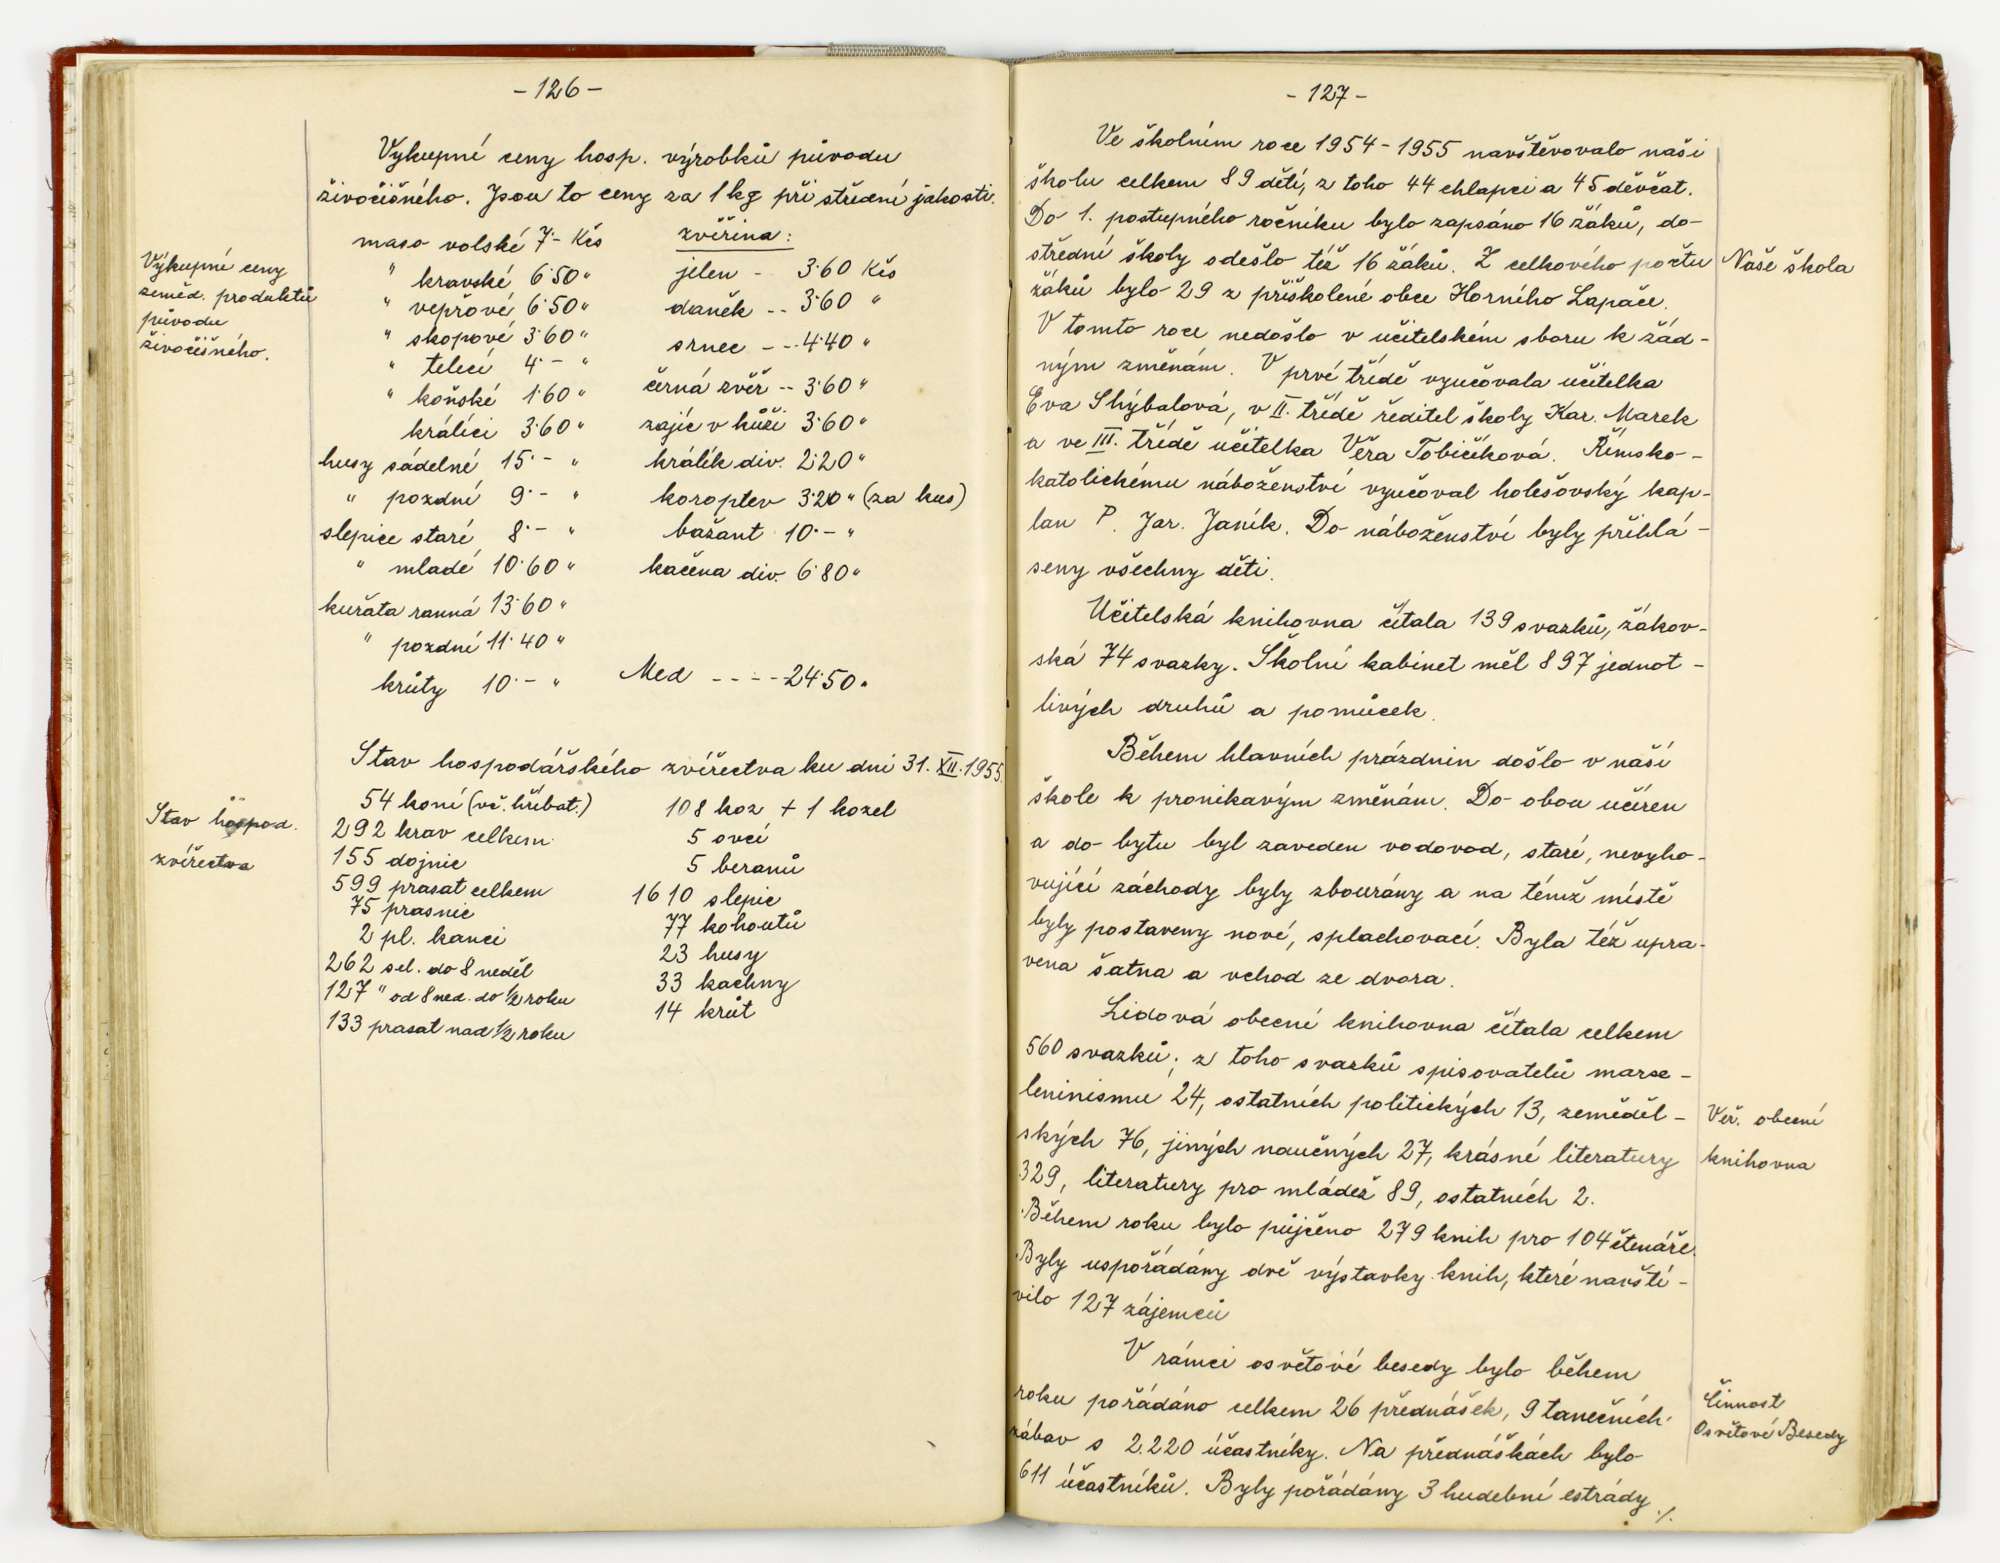 - 126 -
Vykupné ceny hosp. výrobků původu
živočišného. Jsou to ceny za 1 kg při střední jakosti.
Výkupné ceny
zeměd. produktů
původu
živočišného.
maso volské 7·- Kčs
" kravské 6·50 "
" vepřové 6·50 "
" skopové 3·60 "
" telecí 4·- "
" koňské 1·60 "
králíci 3·60 "
husy sádelné 15·- "
" pozdní 9·- "
slepice staré 8·- "
" mladé 10·60 "
kuřata ranná 13·60 "
" pozdní 11·40 "
krůty 10·- "
zvěřina:
jelen - 3·60 Kčs
daněk -- 3·60 "
srnec --- 4·40 "
černá zvěř -- 3·60 "
zajíc v kůži 3·60 "
králík div. 2·20 "
koroptev 3·20 " (za kus)
bažant 10·- "
kačena div. 6·80 "
Med ---- 24·50 "
Stav hospodářského zvířectva ku dni 31. XII. 1955
Stav hospod.
zvířectva
54 koní (vč. hříbat.)
292 krav celkem
155 dojnic
599 prasat celkem
75 prasnic
2 pl. kanci
262 sel. do 8 neděl
127 " od 8 ned. do 1/2 roku
133 prasat nad 1/2 roku
108 koz + 1 kozel
5 ovcí
5 beranů
1610 slepic
77 kohoutů
23 husy
33 kachny
14 krůt
- 127 -
Ve školním roce 1954 - 1955 navštěvovalo naši
školu celkem 89 dětí, z toho 44 chlapci a 45 děvčat.
Do 1. postupného ročníku bylo zapsáno 16 žáků, do
střední školy odešlo též 16 žáků. Z celkového počtu
žáků bylo 29 z přiškolené obce Horního Lapače.
Naše škola
V tomto roce nedošlo v učitelském sboru k žád-
ným změnám. V prvé třídě vyučovala učitelka
Eva Shýbalová, v II. třídě ředitel školy Kar. Marek
a ve III. třídě učitelka Věra Tobičíková. Římsko-
katolickému náboženství vyučoval holešovský kap-
lan P. Jar. Janík. Do náboženství byly přihlá-
seny všechny děti.
Učitelská knihovna čítala 139 svazků, žákov-
ská 74 svazky. Školní kabinet měl 897 jednot-
livých druhů a pomůcek.
Během hlavních prázdnin došlo v naší
škole k pronikavým změnám. Do obou učíren
a do bytu byl zaveden vodovod, staré, nevyho-
vující záchody byly zbourány a na témž místě
byly postaveny nové, splachovací. Byla též upra-
vena šatna a vchod ze dvora.
Lidová obecní knihovna čítala celkem
560 svazků; z toho svazků spisovatelů marx-
leninismu 24, ostatních politických 13, zeměděl-
ských 76, jiných naučných 27, krásné literatury
329, literatury pro mládež 89, ostatních 2.
Veř. obecní
knihovna
Během roku bylo půjčeno 279 knih pro 104 čtenáře.
Byly uspořádány dvě výstavky knih, které navští-
vilo 127 zájemců
V rámci osvětové besedy bylo během
roku pořádáno celkem 26 přednášek, 9 tanečních
zábav s 2.220 účastníky. Na přednáškách bylo
611 účastníků. Byly pořádány 3 hudební estrády ./.
Činnost
Osvětové Besedy